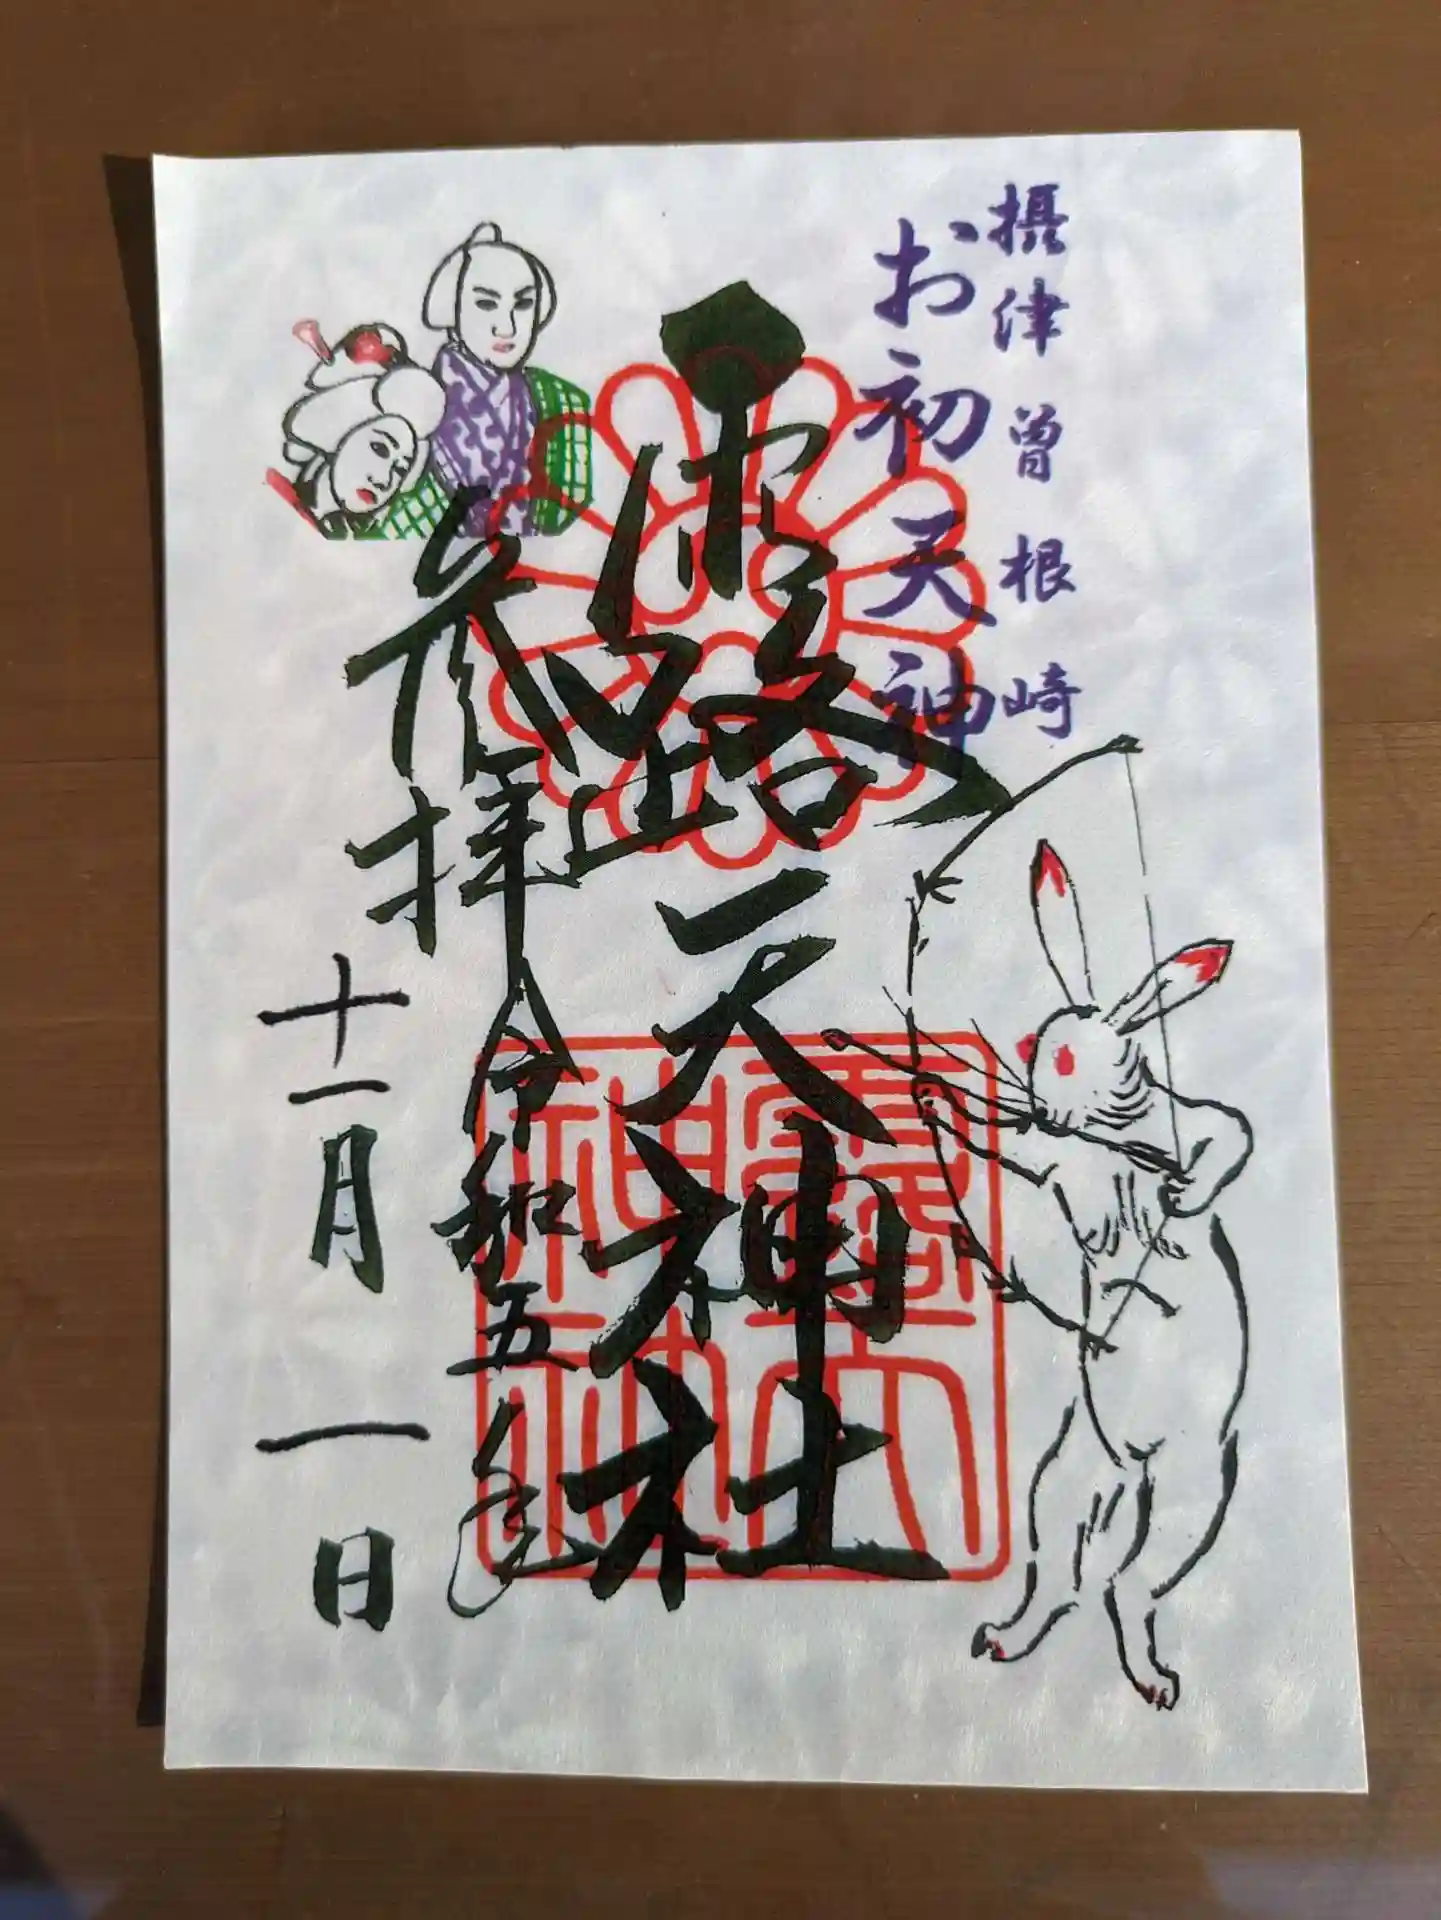 摂津曽根崎
お初天神
露天神社
参拝令和五年
十一月一日
露天
神社